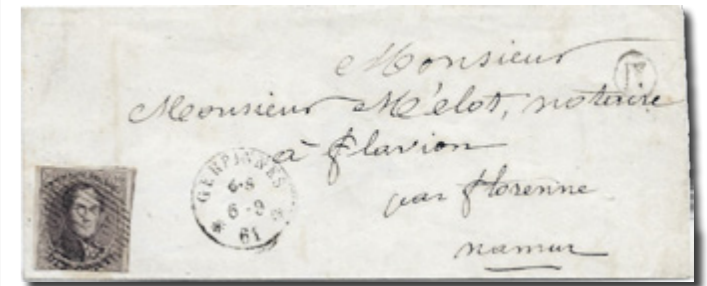 Monsieur
Monsieur Mélot, notaire
à flavion
par florenne
namur
GERPINNES
6-S
6-9
61